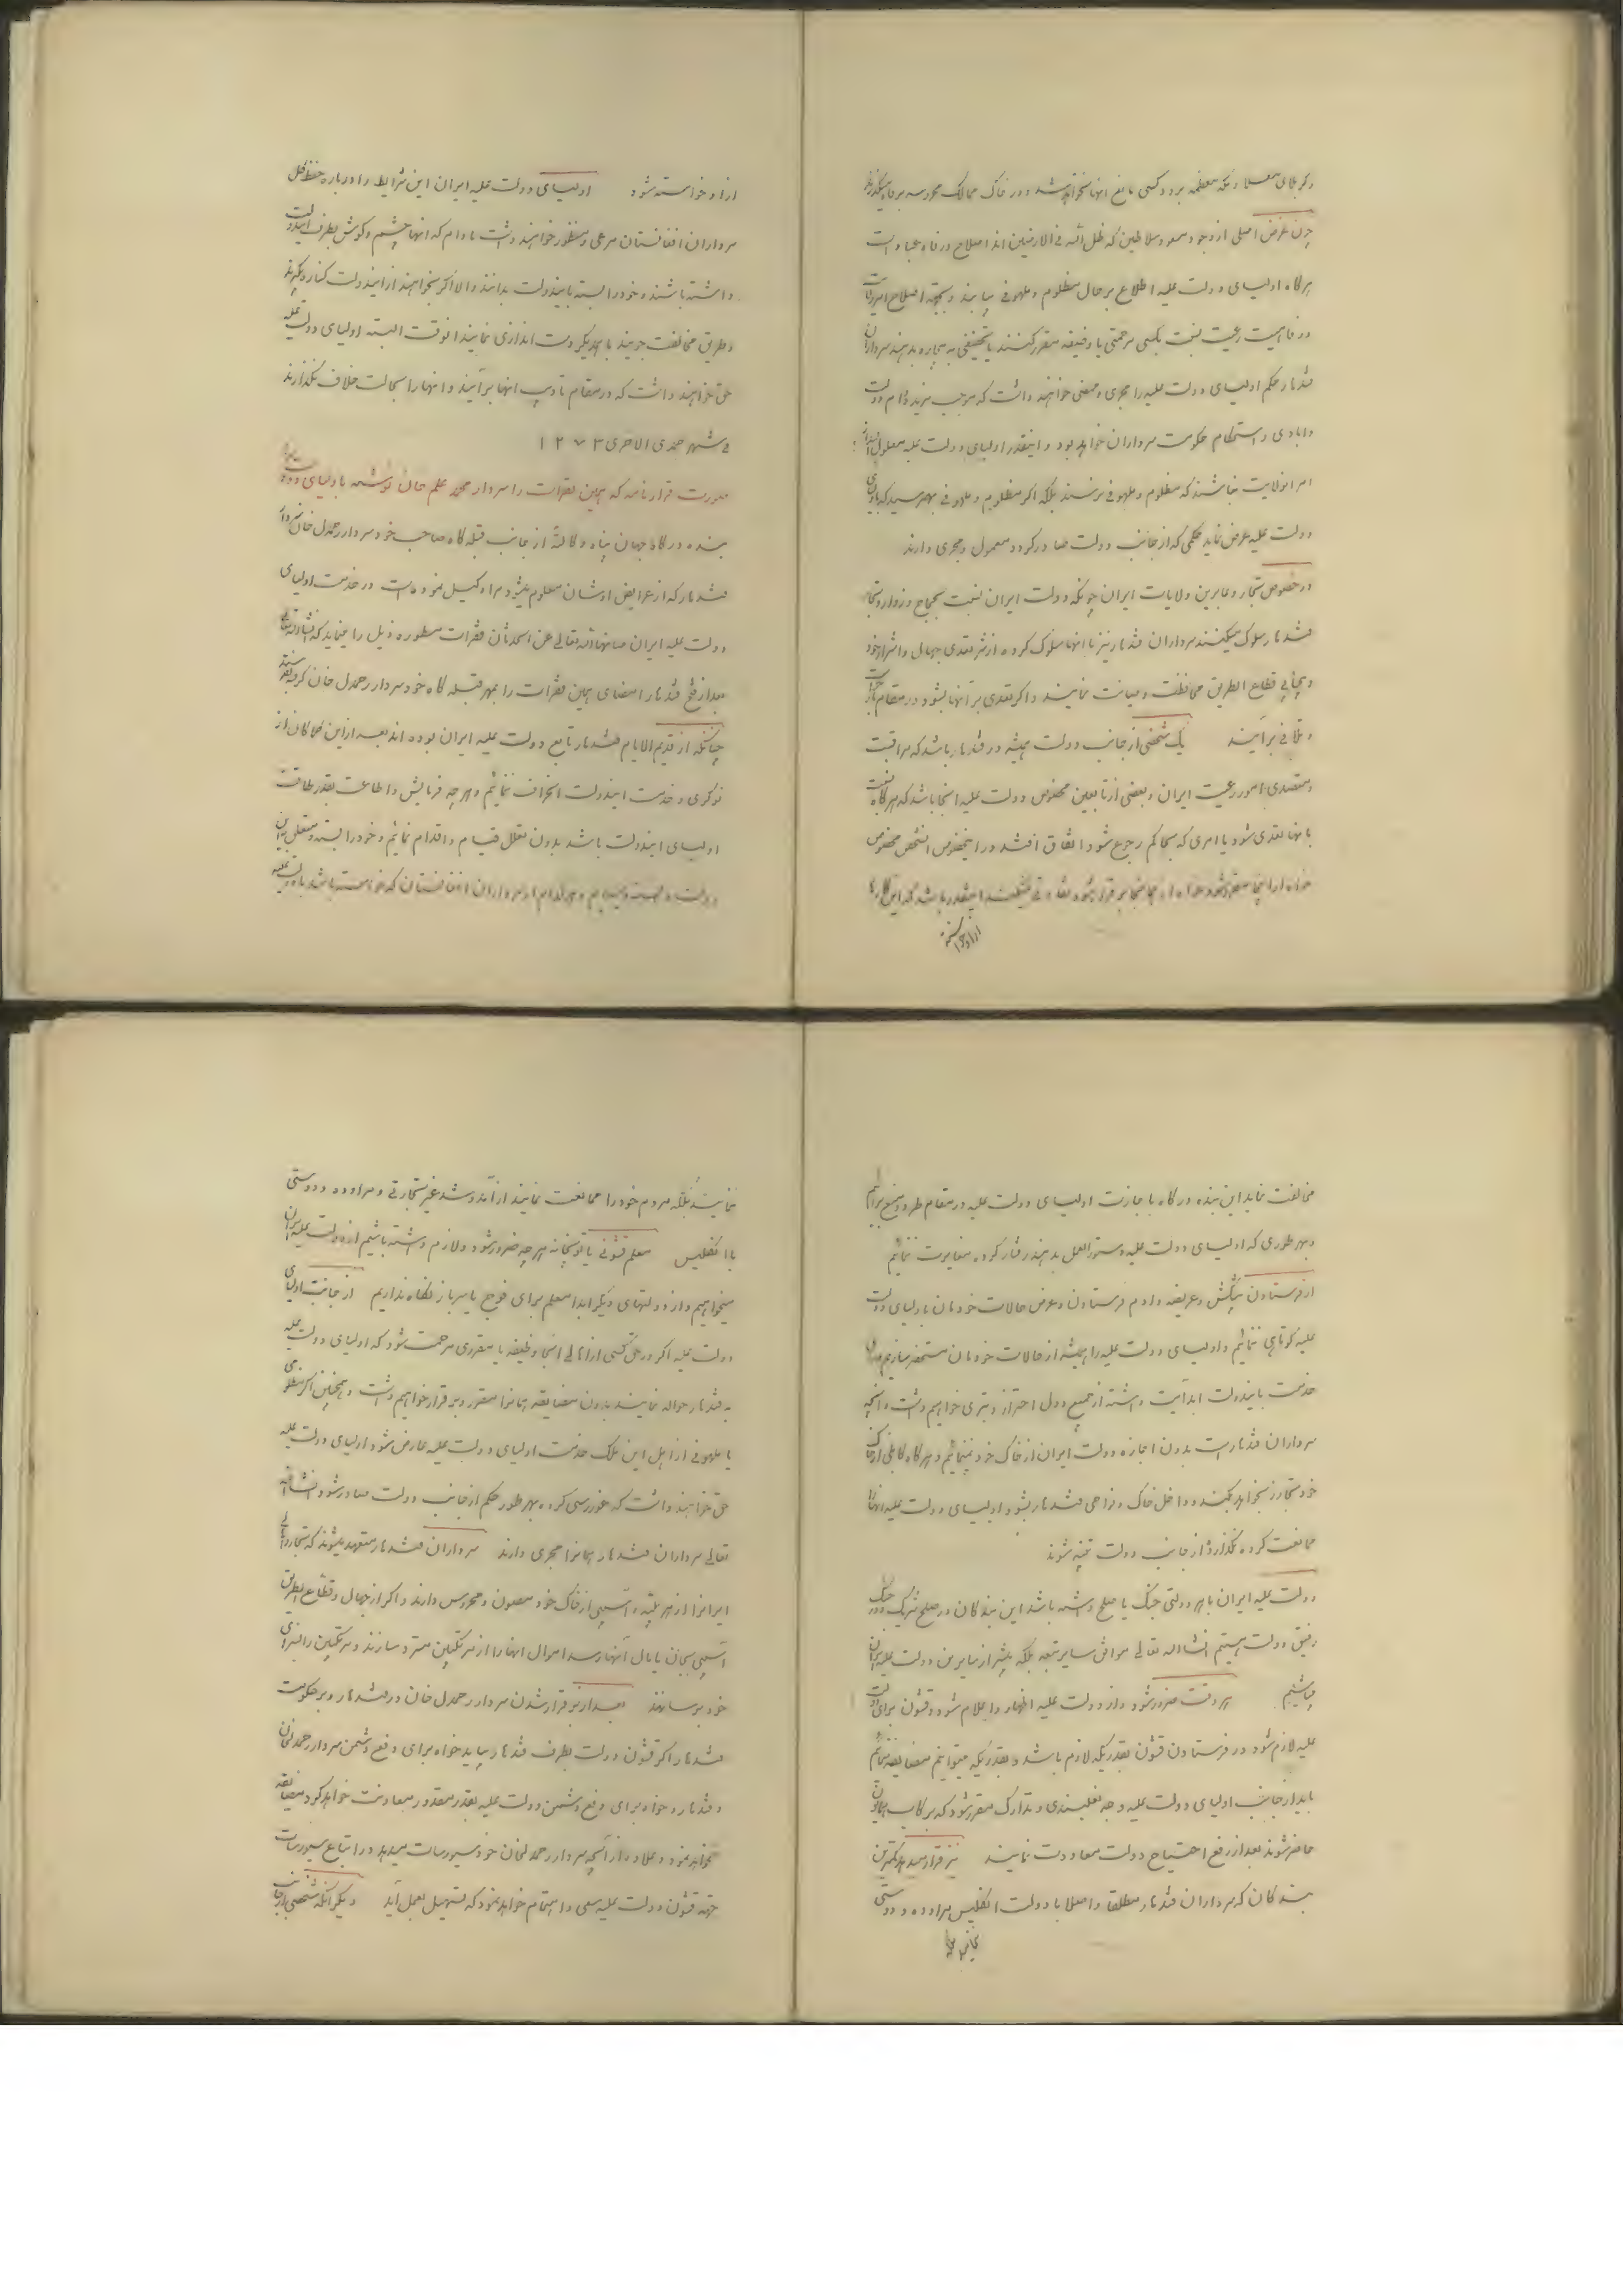 و کربلای معلا و مکه معظمه برود کسی مانع آنها نخواهد شد و در خاک ممالک محروسه مرفه میگذرند
چون غرض اصلی از وجود مسعود سلاطین که ظل الله فی الارضین اند اصلاح و رفاه عباد است
هرگاه اولیای دولت علیه اطلاع بر حال مظلوم و ملهوفی بیابند و بجهة اصلاح امر ولایت
و رفاهیت رعیت نسبت بکسی مرحمتی یا وظیفه مقرر کنند یا تخفیفی به بیچاره بدهند سرداران
قندهار حکم اولیای دولت علیه را مجری و ممضی خواهند داشت که موجب مزید دوام دولت
و آبادی و استحکام حکومت سرداران خواهد بود و اینقدر اولیای دولت علیه
امر انولایت نباشند که مظلوم و ملهوفی نرسند بلکه اگر مظلوم و ملهوفی بهم رسید که باولیای
دولت علیه عرض نماید حکمی که از جانب دولت صادر گردد معمول و مجری دارند
در خصوص تجار و عابرین ولایات ایران چونکه دولت ایران نسبت بحجاج و زوار و تجار
قندهار سلوک میکنند سرداران قندهار نیز با آنها سلوک کرده از شر تعدی جهال و اشرار خود
و قطاع الطریق محافظت و صیانت نمایند و اگر تعدی بر آنها بشود در مقام
و تلافی برآیند یک شخصی از جانب دولت همیشه در قندهار باشد که مراقبت
و متصدی امور رعیت ایران و بعضی از تابعین مخصوص دولت علیه آنجا باشد که هرگاه
بآنها تعدی شود یا امری که بحاکم رجوع شود اتفاق افتد در اینخصوص آنشخص مخصوص
ازاو خواسته
ازاو خواسته شود اولیای دولت علیه ایران این شرایط را درباره حفظ کل
سرداران افغانستان مرعی و منظور خواهند داشت مادام که آنها چشم و گوش بطرف ایندولت
داشته باشند و خود را بسته بایندولت بدانند والا اگر بخواهند از ایندولت کناره بگیرند
و طریق مخالفت جویند یا بهمدیگر دست اندازی نمایند آنوقت البته اولیای دولت علیه
حق خواهند داشت که در مقام تادیب آنها برآیند و آنها را بحالت خلاف نگذارند
فی شهر جمدی الاخری ۱۲۷۳
صورت قرارنامه که همین فقرات را سردار محمد علم خان نوشته باولیای دولت
بنده درگاه جهان پناه وکالة از جانب قبله گاه صاحب خود سردار رحمدل خان سردار
قندهار که از عرایض اوشان معلوم میشود مرا وکیل نموده است در خدمت اولیای
دولت علیه ایران صانها الله تعالی عن الحدثان فقرات مسطوره ذیل را مینماید که انشاءالله تعالی
بعد از فتح قندهار امضای همین فقرات را بمهر قبله گاه خود سردار رحمدل خان گرفته
چنانکه از قدیم الایام قندهار تابع دولت علیه ایران بوده اند بعد از این کماکان از
نوکری و خدمت ایندولت انحراف ننمائیم و هر چه فرمایش و اطاعت بقدر طاقت
اولیای ایندولت باشد بدون تعلل قیام و اقدام نمائیم و خود را بسته و متعلق باین
دولت و هر کدام از سرداران افغانستان که خواسته باشد با دولت علیه
مخالفت نماید این بنده درگاه با اجازت اولیای دولت علیه در مقام طرد و منع برآیم
و بهر طوری که اولیای دولت علیه دستورالعمل بدهند رفتار کرده مغایرت ننمائیم
از فرستادن پیشکش و عریضه و آدم فرستادن و عرض حالات خودمان باولیای دولت
علیه کوتاهی ننمائیم و اولیای دولت علیه را همیشه از حالات خودمان مستحضر سازیم
خدمت بایندولت ابدآیت داشته از جمیع دول احتراز و تبری خواهیم داشت و آنچه
سرداران قندهار است بدون اجازه دولت ایران از خاک خود نمینمائیم و هرگاه کابلی از خاک
خود تجاوز بخواهد بکند و داخل خاک و نواحی قندهار بشود اولیای دولت علیه آنها را
ممانعت کرده نگذارند از جانب دولت تنبیه شوند
دولت علیه ایران با هر دولتی جنگ یا صلح داشته باشد این بندگان در صلح شریک و در جنگ
رفیق دولت هستیم انشاءالله تعالی موافق سایر تبعه بلکه بیشتر از سایرین دولت علیه ایران
میباشیم هر وقت ضرور شود و از دولت علیه اظهار و اعلام شود و قشون برای دولت
علیه لازم شود در فرستادن قشون بقدریکه لازم باشد و بقدریکه میتوانیم مضایقه ننمائیم
باید از جانب اولیای دولت علیه وجه نعلبندی و تدارک مقرر شود که برکاب همایون
حاضر شوند بعد از رفع احتیاج دولت معاودت نمایند نیز قرار میدهد کمترین
بندگان که سرداران قندهار مطلقا و اصلا با دولت انگلیس مراوده و دوستی
نمایند بلکه
نمایند بلکه مردم خود را ممانعت نمایند از آمد و شد غیر تجارتی و مراوده و دوستی
با انگلیس معلم قشونی یا توپخانه هر چه ضرور شود و لازم داشته باشیم از دولت علیه ایران
میخواهیم و از دولتهای دیگر ابدا معلم برای فوج یا سرباز نگاه نداریم از جانب اولیای
دولت علیه اگر در حق کسی از اهالی آنجا وظیفه یا مقرری مرحمت شود که اولیای دولت علیه
به قندهار حواله نمایند بدون مضایقه همانرا مقرر و برقرار خواهیم داشت و همچنین اگر مظلومی
یا ملهوفی از اهل این ملک خدمت اولیای دولت علیه عارض شود اولیای دولت علیه
حق خواهند داشت که غوررسی کرده بهر طور حکم از جانب دولت صادر شود انشاءالله
تعالی سرداران قندهار همانرا مجری دارند سرداران قندهار متعهد میشوند که تجار و
ایرانرا از هر بلیه و آسیبی از خاک خود مصون و محروس دارند و اگر از جهال و قطاع الطریق
آسیبی بجان یا مال آنها رسد اموال آنها را از مرتکبین مسترد سازند و مرتکبین را بسزای
خود برسانند بعد از برقرار شدن سردار رحمدل خان در قندهار و بر حکومت
قندهار اگر قشون دولت بطرف قندهار بیاید خواه برای دفع دشمن سردار رحمدلخان
و قندهار و خواه برای دفع دشمن دولت علیه بقدر مقدور معاونت خواهد کرد و مضایقه
نخواهد نمود و علاوه از آنچه سردار رحمدلخان خود سیورسات میدهد در ابتیاع سیورسات
جهة قشون دولت علیه سعی و اهتمام خواهد نمود که تسهیل بعمل آید دیگر آنکه شخصی از جانب